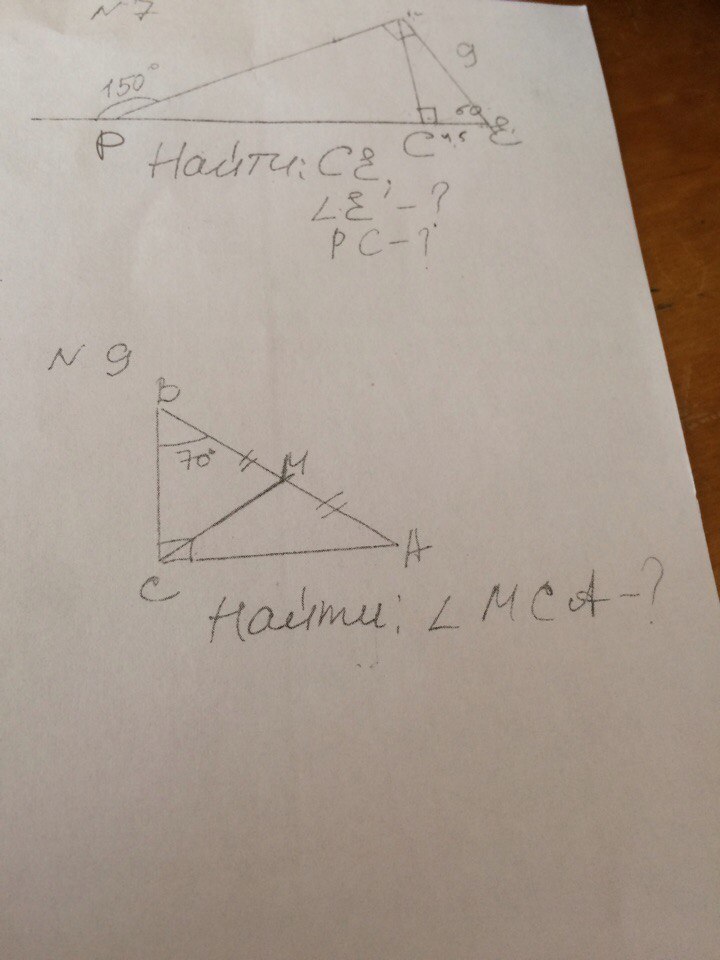 N 7
150°
9
60
P
C 4,5 E
Найти: CE,
∠E - ?
PC - ?
N 9
B
70°
M
A
C
Найти: ∠ MCA - ?